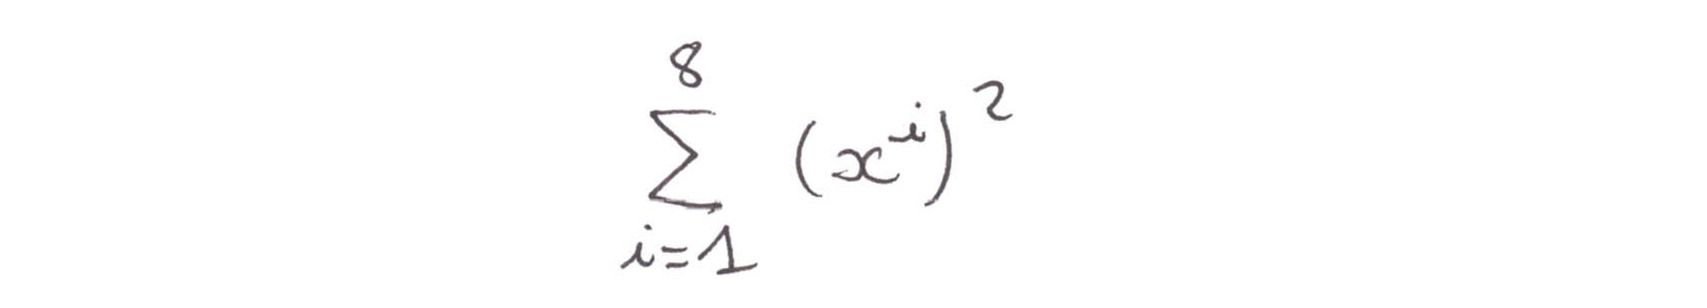 \sum_{i=1}^{8} (x^{i})^{2}